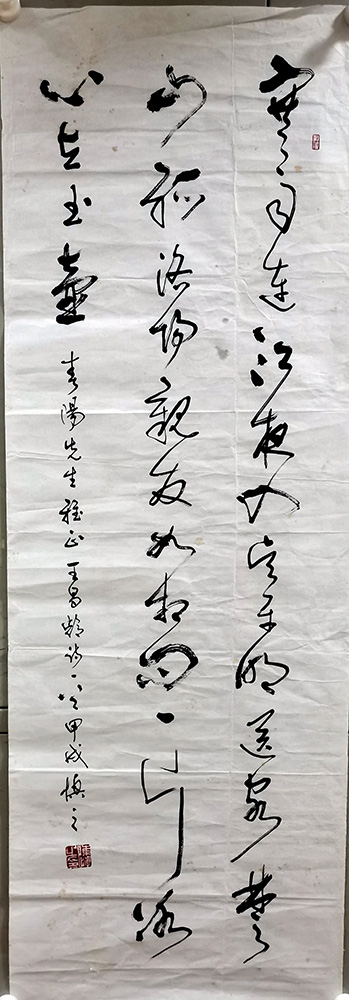 寒雨連江夜入吳平明送客楚
山孤洛陽親友如相問一片冰
心在玉壺
青陽先生雅正 王昌齡詩一首 甲戌 慎之